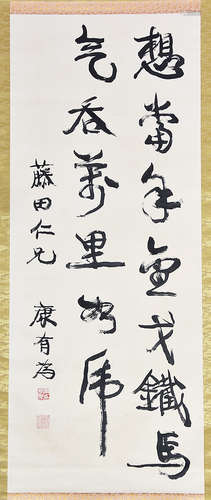 想當年金戈鐵馬
气吞萬里如虎
藤田仁兄
康有為